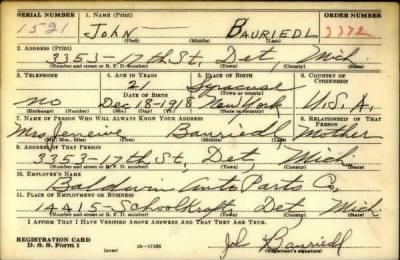 SERIAL NUMBER 1. NAME (Print) ORDER NUMBER
1521 JOHN BAURIEDL 3372
(First) (Middle) (Last)
2. ADDRESS (Print)
3353-17th St, Det, Mich
(Number and street or R. F. D. number) (Town) (County) (State)
3. TELEPHONE 4. AGE IN YEARS 5. PLACE OF BIRTH 6. COUNTRY OF CITIZENSHIP
21 Syracuse
DATE OF BIRTH (Town or county)
no Dec 18-1918 New York U.S.A.
(Exchange) (Number) (Mo.) (Day) (Yr.) (State or country)
7. NAME OF PERSON WHO WILL ALWAYS KNOW YOUR ADDRESS 8. RELATIONSHIP OF THAT PERSON
Mrs Bauriedl Mother
(Mr., Mrs., Miss) (First) (Middle) (Last)
9. ADDRESS OF THAT PERSON
3353-17th St, Det Mich.
(Number and street or R. F. D. number) (Town) (County) (State)
10. EMPLOYER'S NAME
Baldwin Auto Parts Co,
11. PLACE OF EMPLOYMENT OR BUSINESS
14415-Schoolkraft Det Mich
(Number and street or R. F. D. number) (Town) (County) (State)
I AFFIRM THAT I HAVE VERIFIED ABOVE ANSWERS AND THAT THEY ARE TRUE.
REGISTRATION CARD
D. S. S. Form 1 16-17105 Bauriedl
(Registrant's signature)